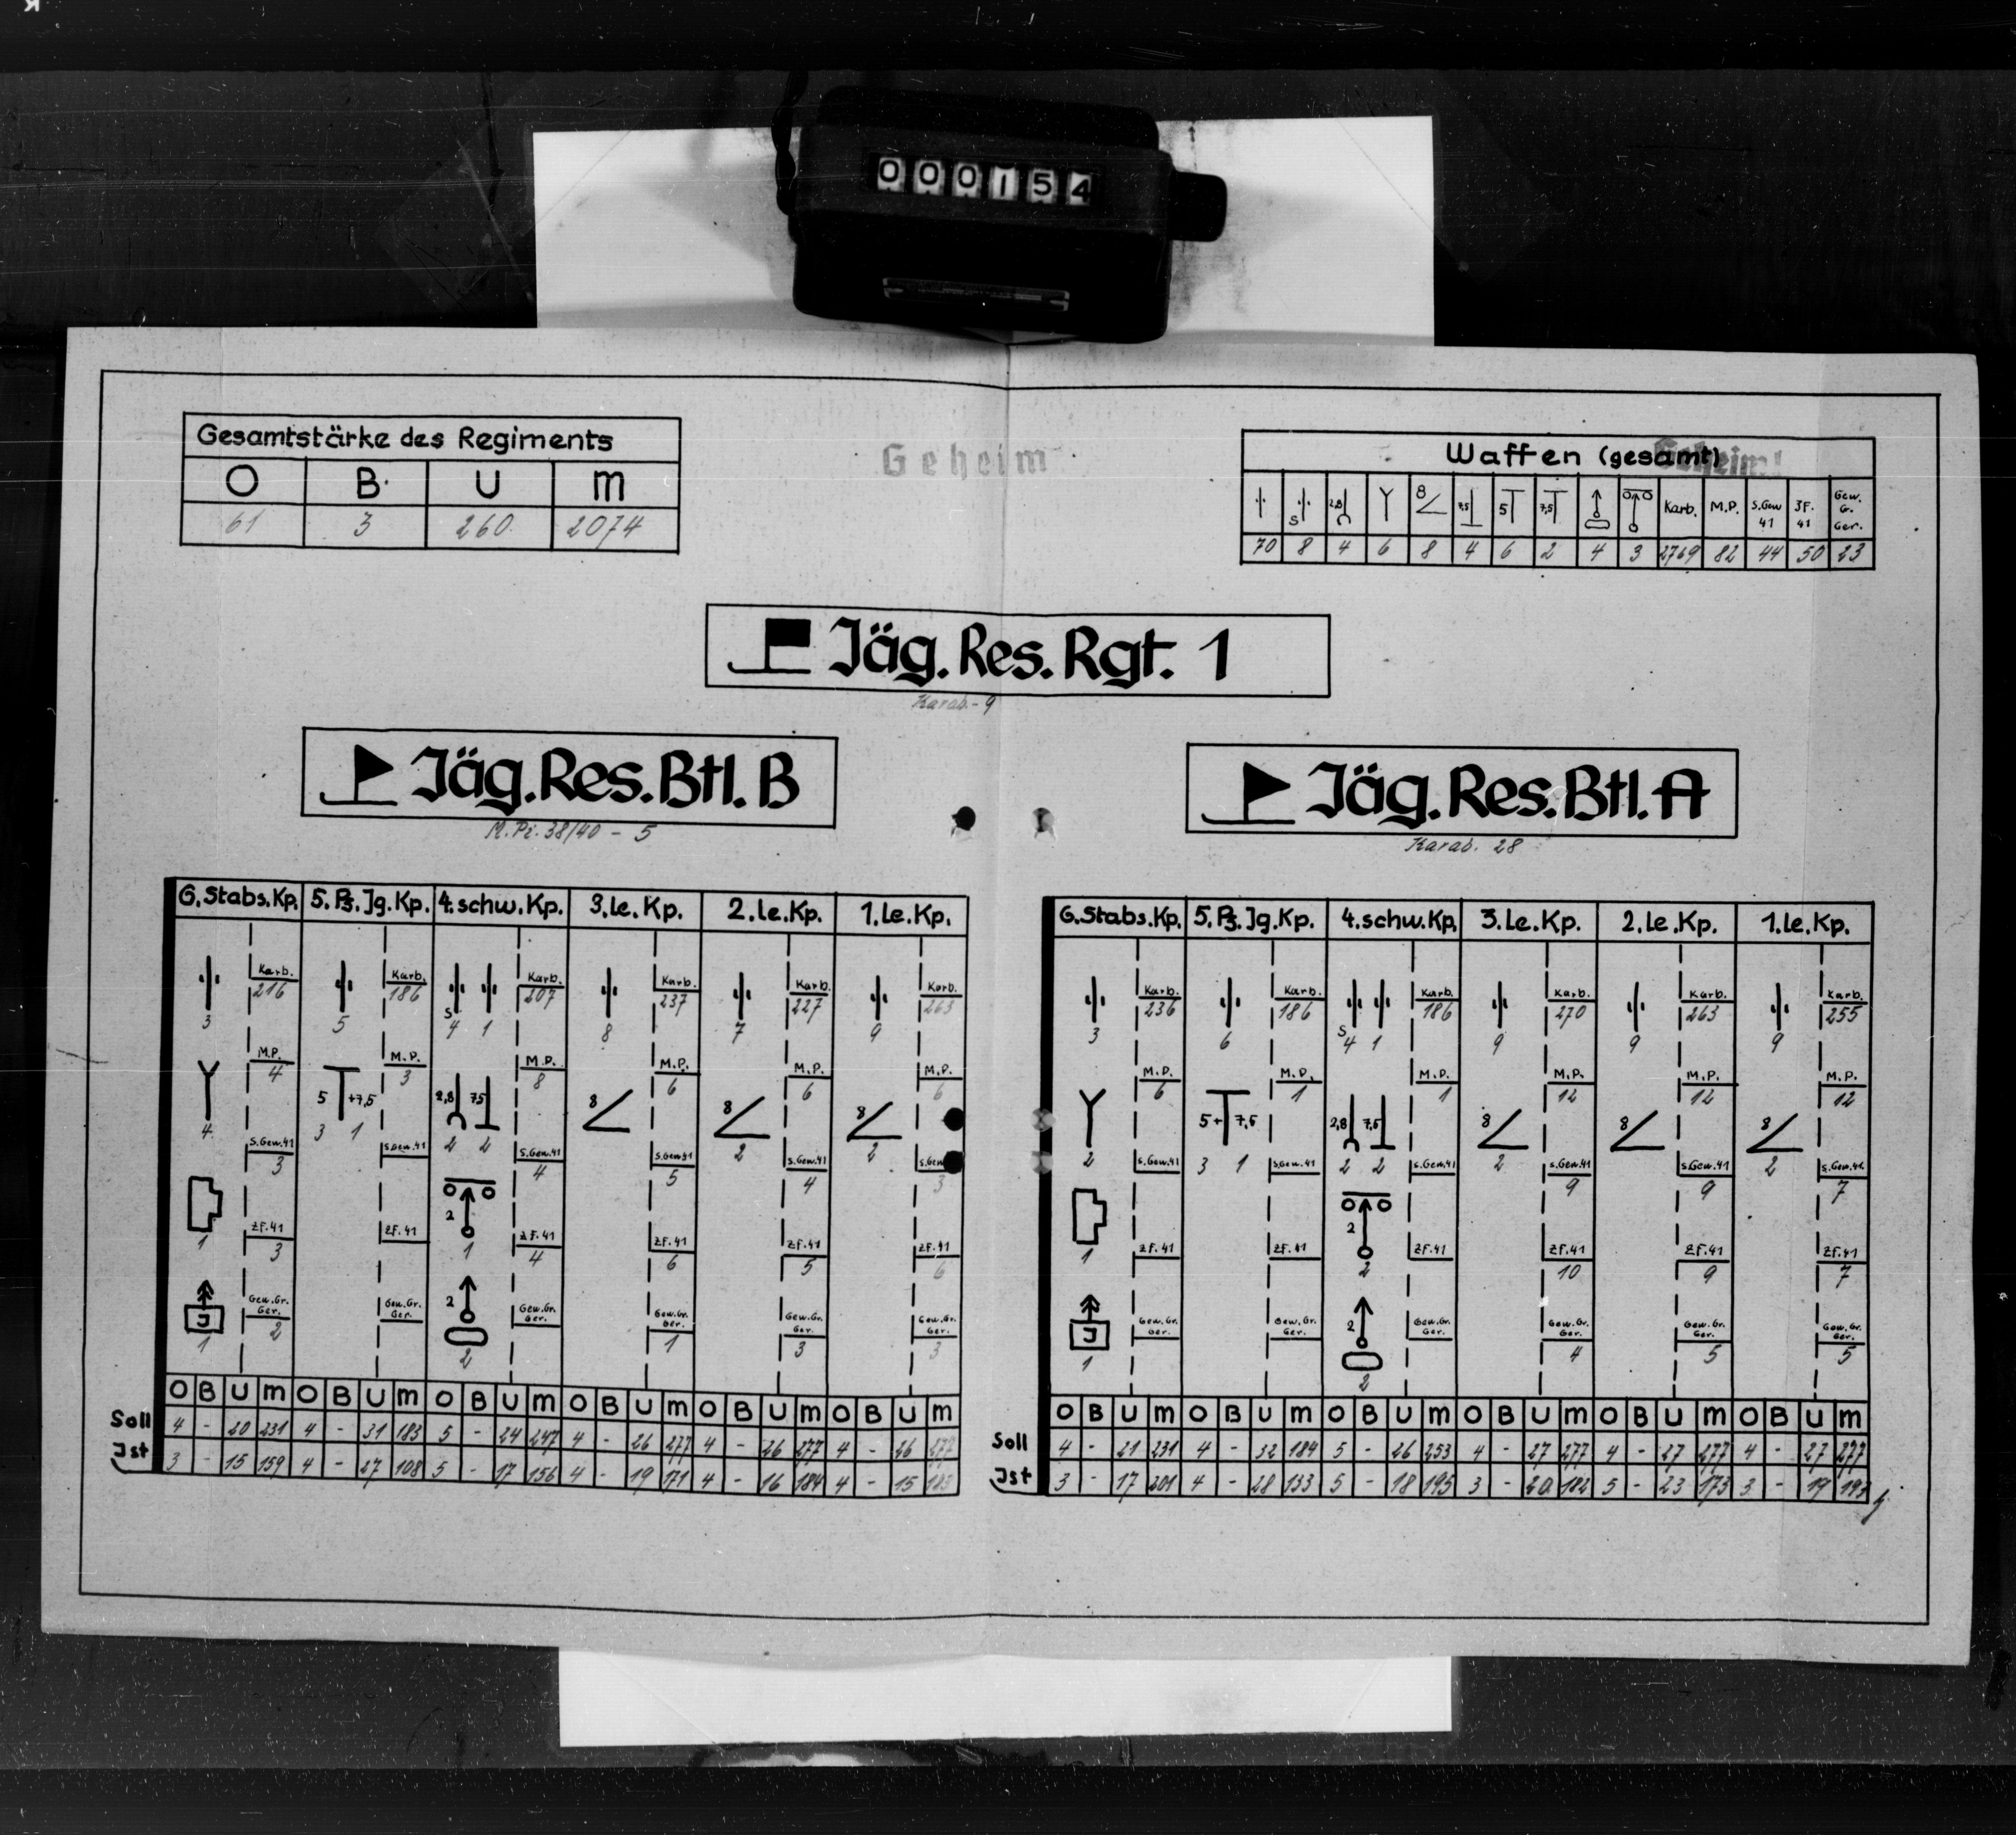 000154
Gesamtstärke des Regiments
O B. U M
61 3 260 2074
Geheim
Waffen (gesamt)
Geheim!
S 2,8 8 7,5 5 7,5 Karb. M.P. S.Gew 41 ZF. 41 Gew. G. Ger.
70 8 4 6 8 4 6 2 4 3 2769 82 44 50 23
Jäg. Res. Rgt. 1
Karab.- 9
Jäg. Res. Btl. B
M.Pi. 38/40 - 5
Jäg. Res. Btl. A
Karab. 28
6. Stabs. Kp. 5. Pz. Jg. Kp. 4. schw. Kp. 3. le. Kp. 2. le. Kp. 1. le. Kp.
Karb. Karb. Karb. Karb. Karb. Karb.
216 186 207 237 227 263
3 5 S 4 1 8 7 9
M.P. M.P. M.P. M.P. M.P. M.P.
4 3 8 6 6 6
5 +7,5 2,8 7,5 8 8 8
4 3 1 2 2 2 2
S.Gew.41 S.Gew.41 S.Gew.41 S.Gew.41 S.Gew.41 S.Gew
3 4 5 4 3
2
ZF.41 ZF.41 ZF.41 ZF.41 ZF.41 ZF.41
1 3 1 4 6 5 6
Gew.Gr. Ger. Gew.Gr. Ger. Gew.Gr. Ger. Gew.Gr. Ger. Gew.Gr. Ger. Gew.Gr. Ger.
J 2
1 2 2 1 3 3
O B U M O B U M O B U M O B U M O B U M O B U M
Soll 4 - 20 231 4 - 31 183 5 - 24 247 4 - 26 277 4 - 26 277 4 - 26 277
Ist 3 - 15 159 4 - 27 108 5 - 17 156 4 - 19 171 4 - 16 184 4 - 15
6. Stabs. Kp. 5. Pz. Jg. Kp. 4. schw. Kp. 3. le. Kp. 2. le. Kp. 1. le. Kp.
Karb. Karb. Karb. Karb. Karb. Karb.
236 186 186 270 263 255
3 6 S 4 1 9 9 9
M.P. M.P. M.P. M.P. M.P. M.P.
6 1 1 12 12 12
5+ 7,5 2,8 7,5 8 8 8
2 3 1 2 2 2 2
S.Gew.41 S.Gew.41 S.Gew.41 S.Gew.41 S.Gew.41 S.Gew.41
9 9 7
2
ZF.41 ZF.41 ZF.41 ZF.41 ZF.41 ZF.41
1 2 10 9 7
Gew.Gr. Ger. Gew.Gr. Ger. Gew.Gr. Ger. Gew.Gr. Ger. Gew.Gr. Ger. Gew.Gr. Ger.
J 2
1 2 4 5 5
O B U M O B U M O B U M O B U M O B U M O B U M
Soll 4 - 21 231 4 - 32 184 5 - 26 253 4 - 27 277 4 - 27 277 4 - 27 277
Ist 3 - 17 201 4 - 28 133 5 - 18 195 3 - 20. 182 5 - 23 173 3 - 19 193